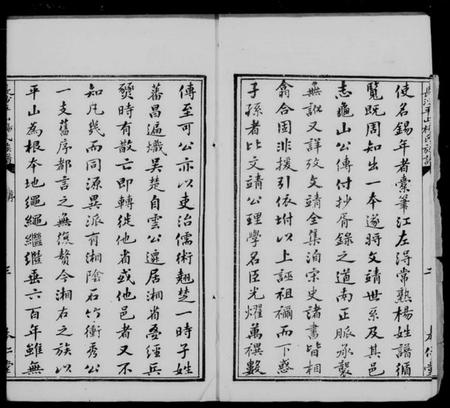 使名錫年者橐筆江左得常熟楊姓譜循
覽既周知出一本遂將文靖世系及其邑
志龜山公傳付抄胥錄之道南正脈承襲
無訛又詳攷文靖全集洎宋史諸書皆相
翕合固非援引依坿以上誣祖禰而下惑
子孫者比文靖公理學名臣光耀萬禩數
傳至可公亦以吏治儒術翹楚一時子姓
蕃昌遍熾吴楚自雲公遷居湘省叠經兵
燹時有散亡即轉徙他省或他邑者又不
知凡幾而同源異派有湘陰石竹衝秀公
一支舊房都言之無復贅今湘右之族以
平山為根本地繩繩繼繼垂六百年雖無